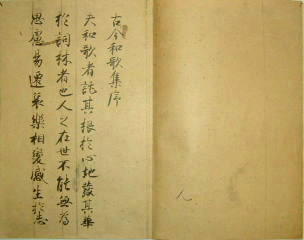 古今和歌集序
夫和歌者託其根於心地發其華
於詞林者也人之在世不能無為
思慮易遷哀樂相變感生於志